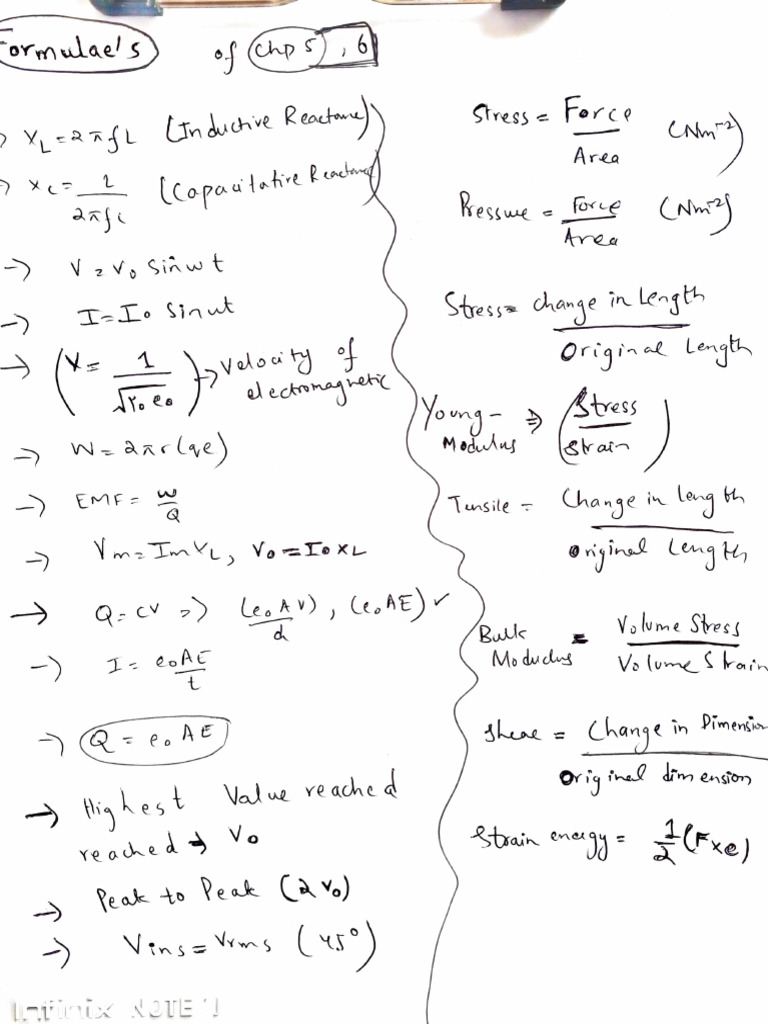 Formulae's of Chp 5, 6
→ XL = 2πfL (Inductive Reactance)
→ Xc = 1/2πfc (Capacitative Reactance)
→ V = Vo Sinwt
→ I = Io Sinwt
→ (V = 1/√μo eo) → Velocity of
electromagnetic
→ W = 2πr(qe)
→ EMF = W/Q
→ Vm = Im XL, Vo = Io XL
→ Q = CV => (eoAV)/d, (eoAE) ✓
→ I = eoAE/t
→ Q = eo AE
→ Highest Value reached
reached → Vo
→ Peak to Peak (2 Vo)
→ Vins = Vrms (45°)
Stress = Force/Area (Nm-2)
Pressure = Force/Area (Nm-2)
Stress = change in Length/Original Length
Young-
Modulus => (Stress/Strain)
Tensile = Change in length/original Length
Bulk
Modulus = Volume Stress/Volume Strain
Shear = Change in Dimension/Original dimension
Strain energy = 1/2 (F×e)
Infinix NOTE